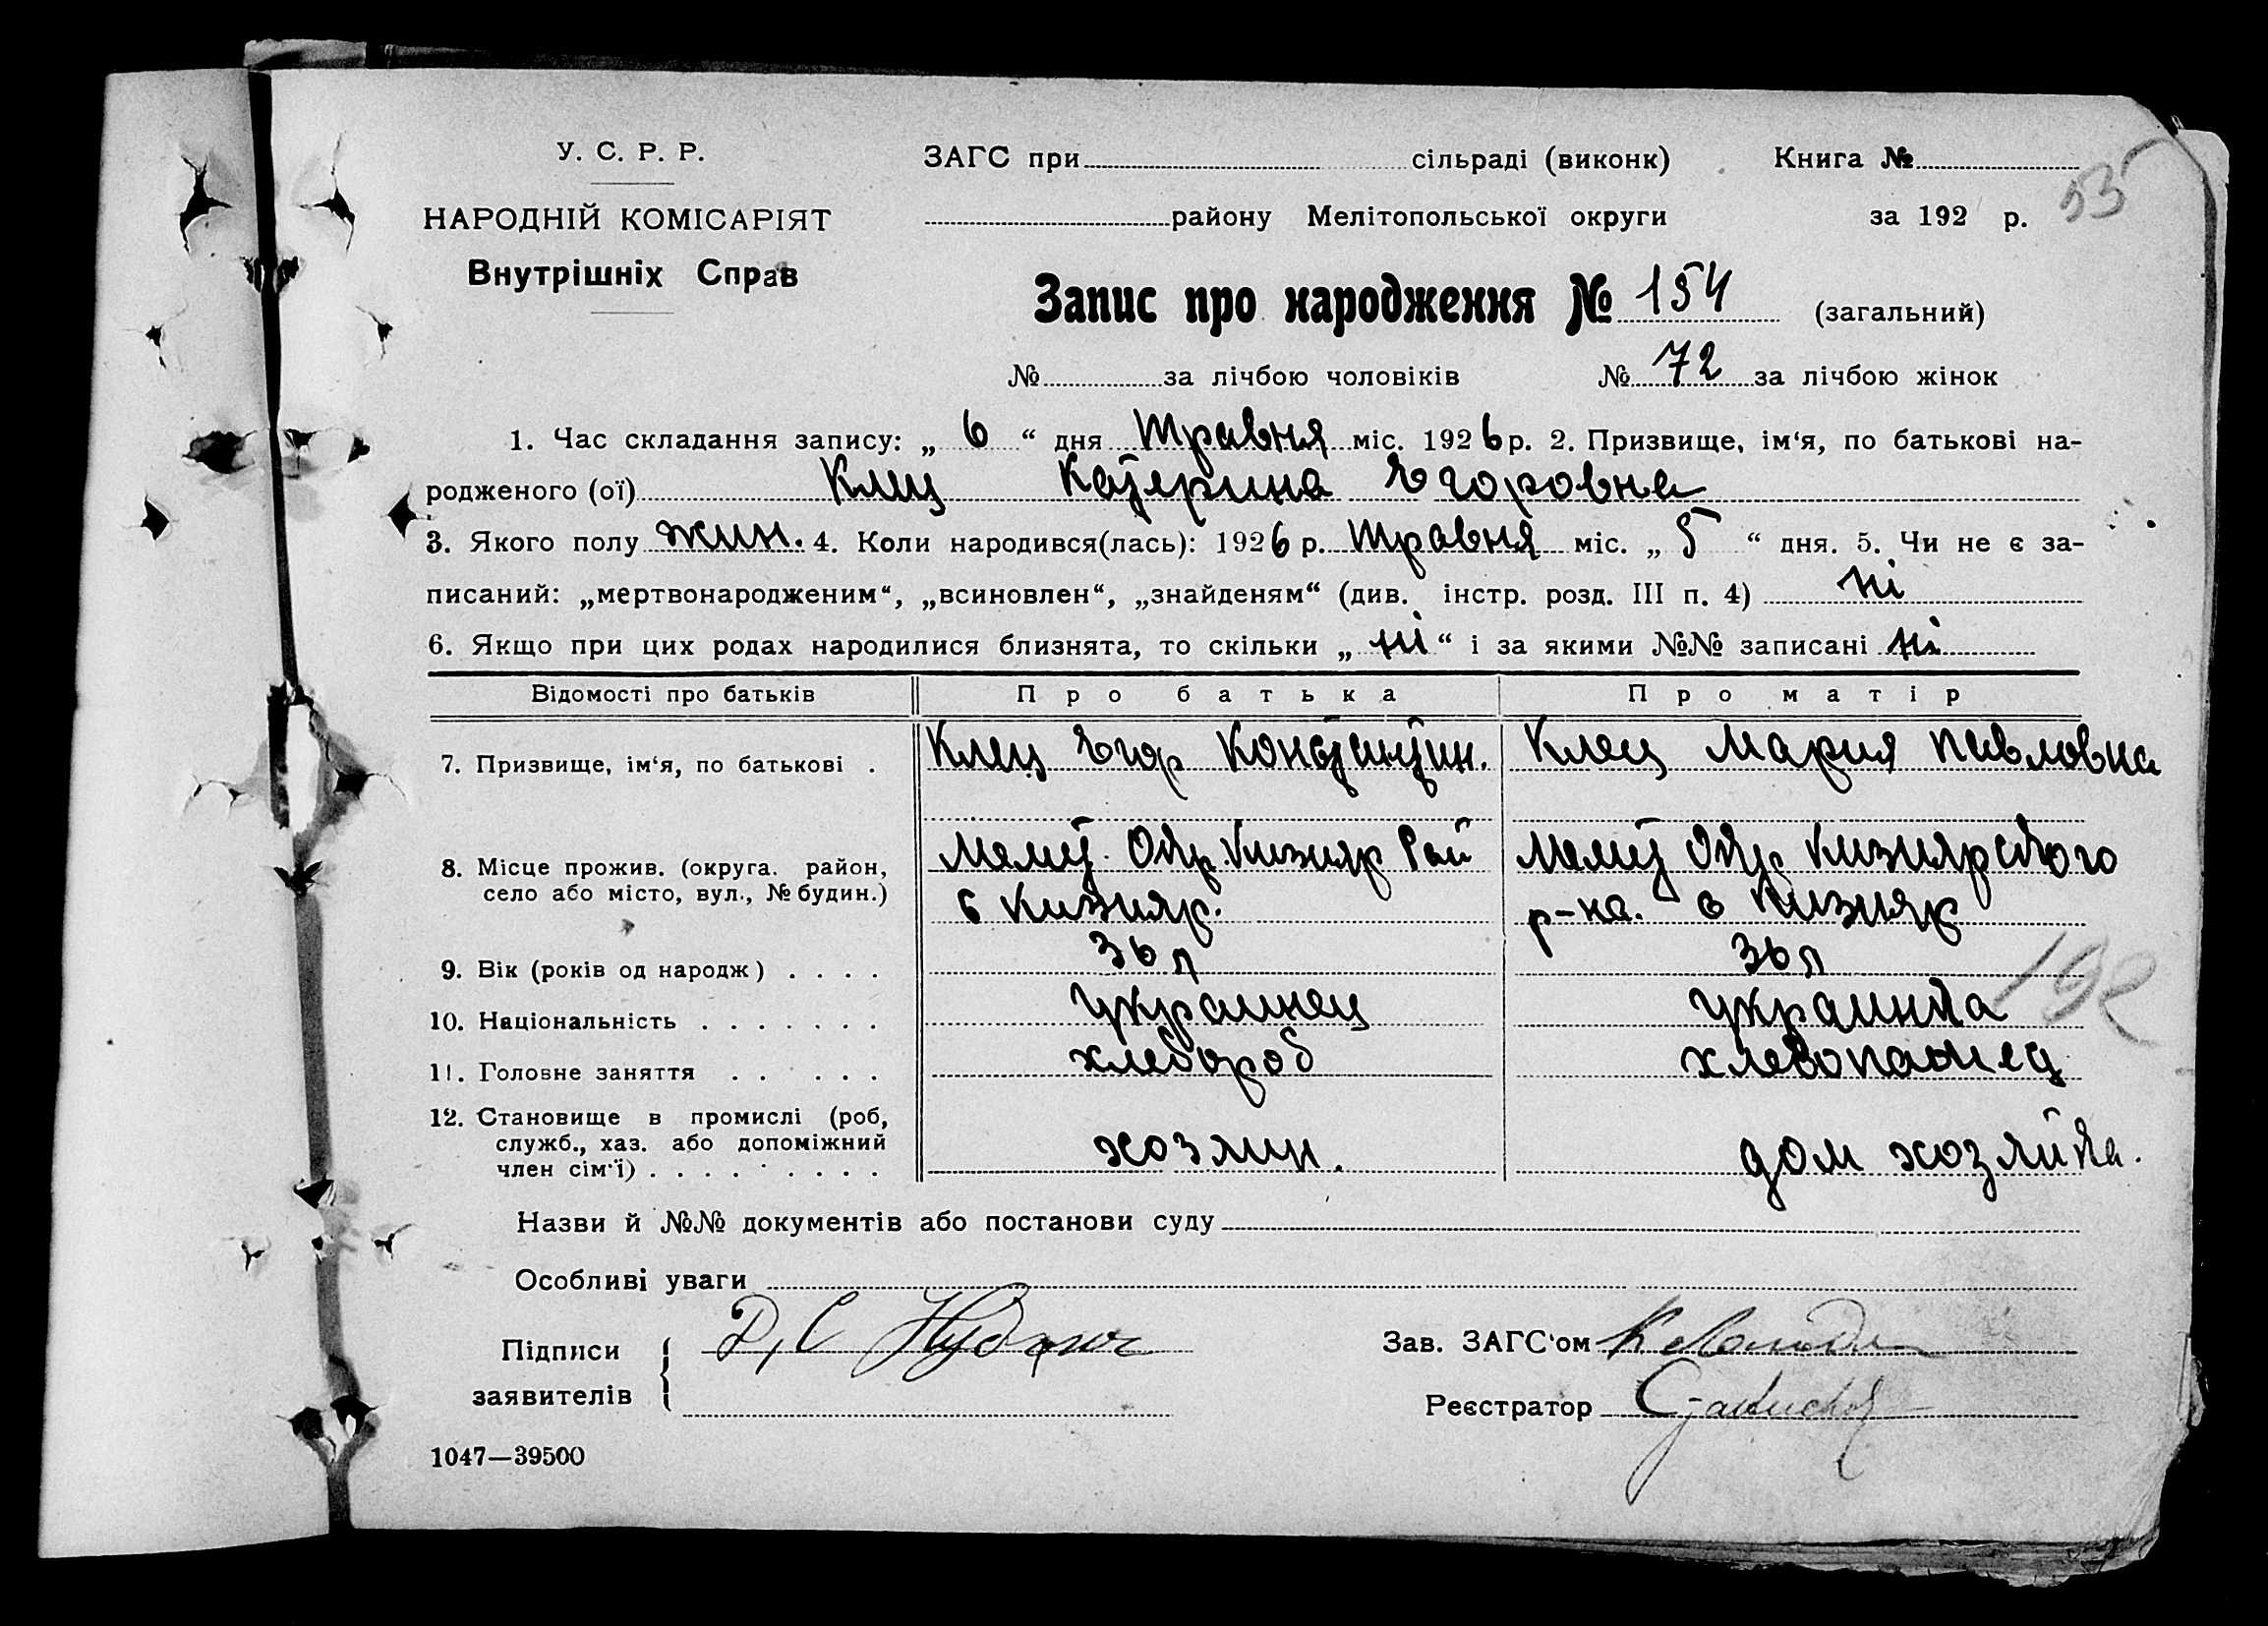 У. С. Р. Р.
НАРОДНІЙ КОМІСАРІЯТ
Внутрішніх Справ
ЗАГС при сільраді (виконк) Книга №
53
району Мелітопольської округи за 192 р.
Запис про народження № 154 (загальний)
№ за лічбою чоловіків № 72 за лічбою жінок
1. Час складання запису: „ 6 “ дня Травня міс. 1926 р. 2. Призвище, ім‘я, по батькові на-
родженого (ої) Клец Катерина Егоровна
3. Якого полу жин. 4. Коли народився(лась): 1926 р. Травня міс. „ 5 “ дня. 5. Чи не є за-
писаний: „мертвонародженим“, „всиновлен“, „знайденям“ (див. інстр. розд. III п. 4) ні
6. Якщо при цих родах народилися близнята, то скільки „ ні “ і за якими №№ записані ні
Відомості про батьків Про батька Про матір
7. Призвище, ім‘я, по батькові . Клец Егор Константин. Клец Мария Павловна
8. Місце прожив. (округа. район, село або місто, вул., № будин.) Мелит. Окр. Кизияр Рай
с Кизияр.
Мелит Окр Кизиярского
р-на. с Кизияр
9. Вік (років од народж) . . . . 36 л 36 л
192
10. Національність . . . . . . . украинец украинка
11. Головне заняття . . . . . . хлебороб хлебопашец
12. Становище в промислі (роб, служб., хаз. або допоміжний член сім‘ї) . . . . . . . . . хозяин. дом хозяйка.
Назви й №№ документів або постанови суду
Особливі уваги
Підписи
заявителів
Д, С
Зав. ЗАГС‘ом
Реєстратор
1047—39500